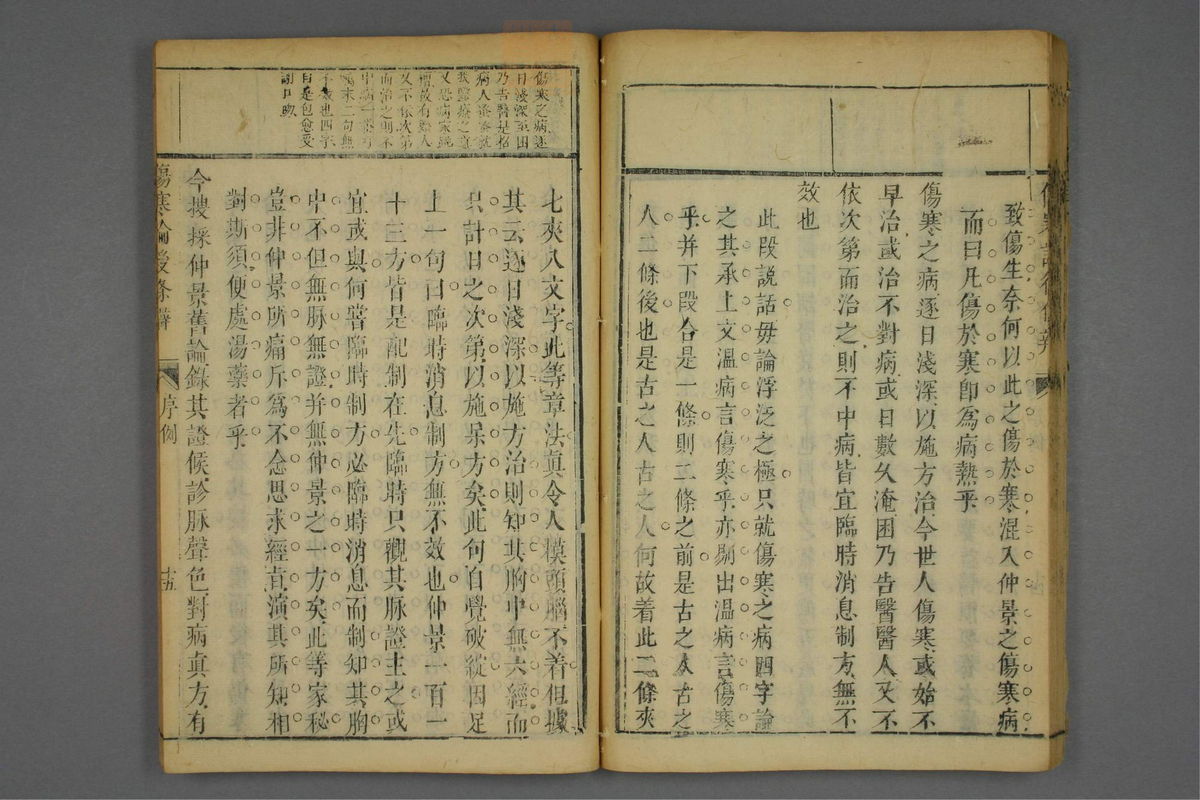 致傷生奈何以此之傷於寒混入仲景之傷寒病
而曰凡傷於寒卽為病熱乎
傷寒之病逐日淺深以施方治今世人傷寒或始不
早治或治不對病或日數久淹困乃告醫醫人又不
依次第而治之則不中病皆宜臨時消息制方無不
效也
此段說話毋論浮泛之極只就傷寒之病四字論
之其承上文溫病言傷寒乎亦剔出溫病言傷寒
乎并下段合是一條則二條之前是古之人古之
人二條後也是古之人古之人何故着此二條夾
傷寒之病逐
日淺深至困
乃告醫是招
病人
我醫療之意
又恐病家
又不依次第
而治之則不
中病一
末二句無
不效也四字
自是包愈受
謝口吻
七夾八文字此等章法真令人模頭腦不着但據
其云逐日淺深以施方治則知其胸中無六經而
只計日之次第以施呆方矣此句自覺破綻因足
上一句曰臨時消息制方無不效也仲景一百一
十三方皆是配制在先臨時只觀其脉證主之或
宜或與何嘗臨時制方必臨時消息而制知其胸
中不但無脉無證并無仲景之一方矣此等家秘
豈非仲景所痛斥為不念思求經旨演其所知相
對斯須便處湯藥者乎
今搜採仲景舊論錄其證候診脉聲色對病真方有
傷寒論後條辨
序例
十五